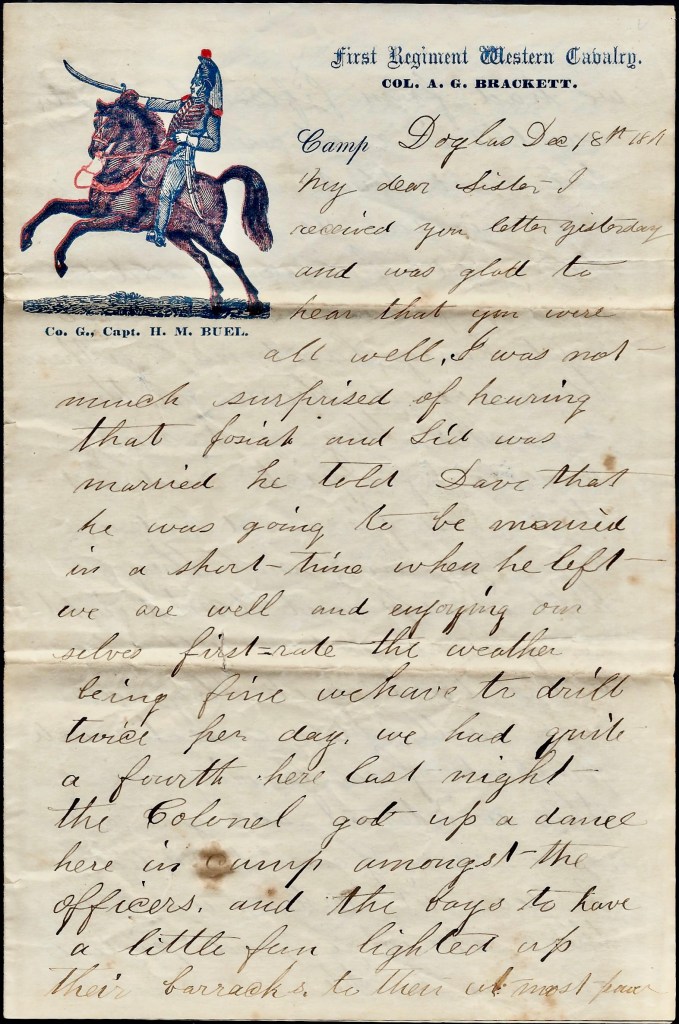 First Regiment Western Cavalry.
COL. A. G. BRACKETT.
Camp Doglas Dec 18th
My dear Sister I
received you letter yesterday
and was glad to
hear that you were
all well, I was not
much surprised of hearing
that Josiah and Sid was
married he told Dave that
he was going to be married
in a short time when he left
we are well and enjoying our
selves first-rate the weather
being fine we have to drill
twice per day, we had quite
a fourth here last night
the Colonel got up a dance
here in camp amongst the
officers. and the boys to have
a little fun lighted up
their barracks to their utmost
Co. G., Capt. H. M. BUEL.